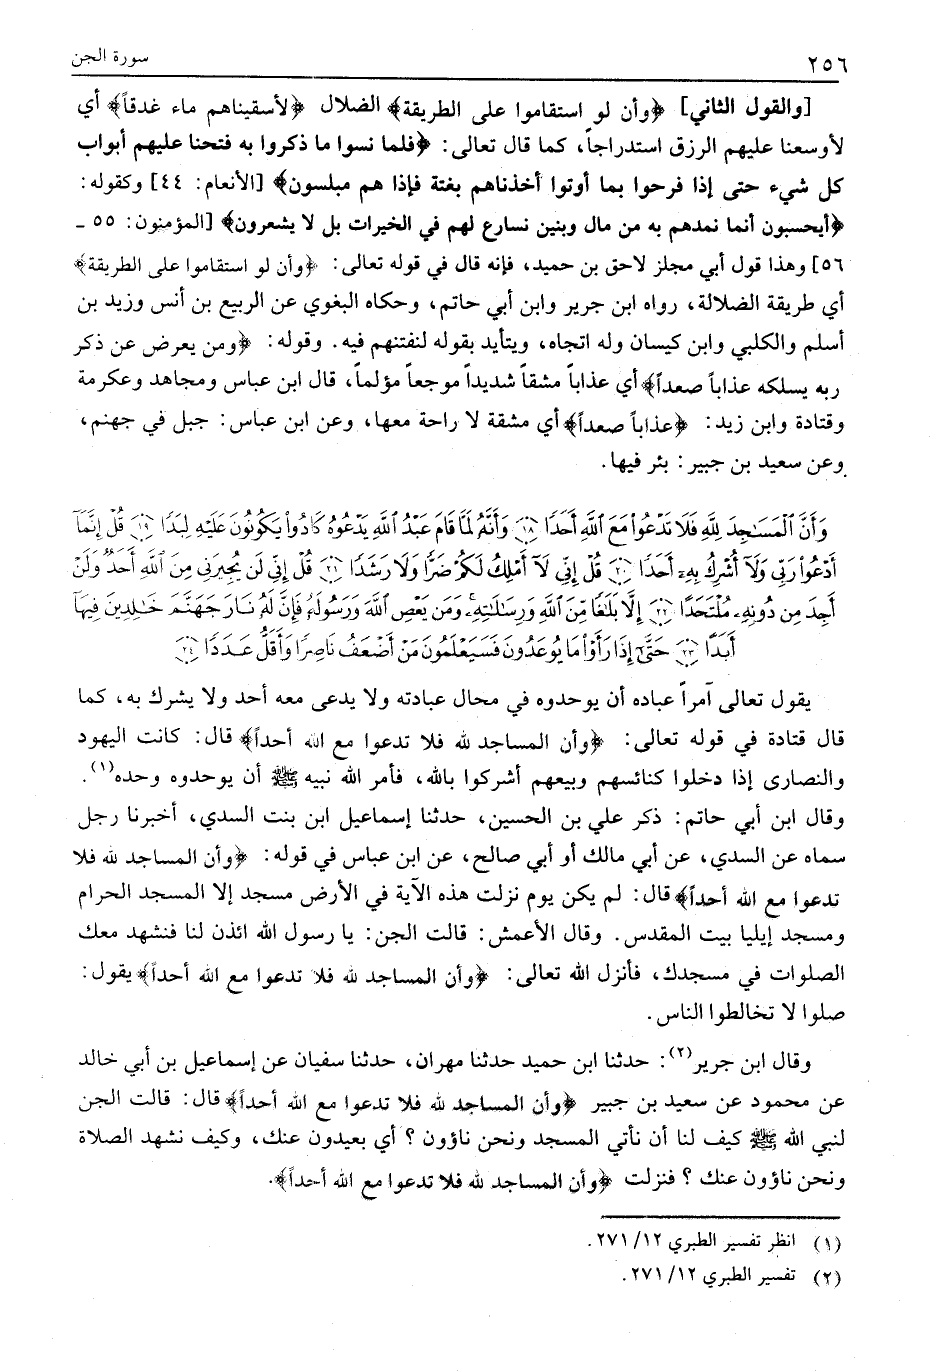 ٢٥٦
سورة الجن
[والقول الثاني] ﴿وأن لو استقاموا على الطريقة﴾ الضلال ﴿لأسقيناهم ماء غدقاً﴾ أي
لأوسعنا عليهم الرزق استدراجاً، كما قال تعالى: ﴿فلما نسوا ما ذكروا به فتحنا عليهم أبواب
كل شيء حتى إذا فرحوا بما أوتوا أخذناهم بغتة فإذا هم مبلسون﴾ [الأنعام: ٤٤] وكقوله:
﴿أيحسبون أنما نمدهم به من مال وبنين نسارع لهم في الخيرات بل لا يشعرون﴾ [المؤمنون: ٥٥ ـ
٥٦] وهذا قول أبي مجلز لاحق بن حميد، فإنه قال في قوله تعالى: ﴿وأن لو استقاموا على الطريقة﴾
أي طريقة الضلالة، رواه ابن جرير وابن أبي حاتم، وحكاه البغوي عن الربيع بن أنس وزيد بن
أسلم والكلبي وابن كيسان وله اتجاه، ويتأيد بقوله لنفتنهم فيه. وقوله: ﴿ومن يعرض عن ذكر
ربه يسلكه عذاباً صعداً﴾ أي عذاباً مشقاً شديداً موجعاً مؤلماً، قال ابن عباس ومجاهد وعكرمة
وقتادة وابن زيد: ﴿عذاباً صعداً﴾ أي مشقة لا راحة معها، وعن ابن عباس: جبل في جهنم،
وعن سعيد بن جبير: بئر فيها.
وَأَنَّ ٱلْمَسَـٰجِدَ لِلَّهِ فَلَا تَدْعُوا۟ مَعَ ٱللَّهِ أَحَدًا ﴿١٨﴾ وَأَنَّهُۥ لَمَّا قَامَ عَبْدُ ٱللَّهِ يَدْعُوهُ كَادُوا۟ يَكُونُونَ عَلَيْهِ لِبَدًا ﴿١٩﴾ قُلْ إِنَّمَآ
أَدْعُوا۟ رَبِّى وَلَآ أُشْرِكُ بِهِۦٓ أَحَدًا ﴿٢٠﴾ قُلْ إِنِّى لَآ أَمْلِكُ لَكُمْ ضَرًّا وَلَا رَشَدًا ﴿٢١﴾ قُلْ إِنِّى لَن يُجِيرَنِى مِنَ ٱللَّهِ أَحَدٌ وَلَنْ
أَجِدَ مِن دُونِهِۦ مُلْتَحَدًا ﴿٢٢﴾ إِلَّا بَلَـٰغًا مِّنَ ٱللَّهِ وَرِسَـٰلَـٰتِهِۦ وَمَن يَعْصِ ٱللَّهَ وَرَسُولَهُۥ فَإِنَّ لَهُۥ نَارَ جَهَنَّمَ خَـٰلِدِينَ فِيهَآ
أَبَدًا ﴿٢٣﴾ حَتَّىٰٓ إِذَا رَأَوْا۟ مَا يُوعَدُونَ فَسَيَعْلَمُونَ مَنْ أَضْعَفُ نَاصِرًا وَأَقَلُّ عَدَدًا ﴿٢٤﴾
يقول تعالى آمراً عباده أن يوحدوه في محال عبادته ولا يدعى معه أحد ولا يشرك به، كما
قال قتادة في قوله تعالى: ﴿وأن المساجد لله فلا تدعوا مع الله أحداً﴾ قال: كانت اليهود
والنصارى إذا دخلوا كنائسهم وبيعهم أشركوا بالله، فأمر الله نبيه ﷺ أن يوحدوه وحده(١).
وقال ابن أبي حاتم: ذكر علي بن الحسين، حدثنا إسماعيل ابن بنت السدي، أخبرنا رجل
سماه عن السدي، عن أبي مالك أو أبي صالح، عن ابن عباس في قوله: ﴿وأن المساجد لله فلا
تدعوا مع الله أحداً﴾ قال: لم يكن يوم نزلت هذه الآية في الأرض مسجد إلا المسجد الحرام
ومسجد إيليا بيت المقدس. وقال الأعمش: قالت الجن: يا رسول الله ائذن لنا فنشهد معك
الصلوات في مسجدك، فأنزل الله تعالى: ﴿وأن المساجد لله فلا تدعوا مع الله أحداً﴾ يقول:
صلوا لا تخالطوا الناس.
وقال ابن جرير(٢): حدثنا ابن حميد حدثنا مهران، حدثنا سفيان عن إسماعيل بن أبي خالد
عن محمود عن سعيد بن جبير ﴿وأن المساجد لله فلا تدعوا مع الله أحداً﴾ قال: قالت الجن
لنبي الله ﷺ كيف لنا أن نأتي المسجد ونحن ناؤون ؟ أي بعيدون عنك، وكيف نشهد الصلاة
ونحن ناؤون عنك ؟ فنزلت ﴿وأن المساجد لله فلا تدعوا مع الله أحداً﴾.
(١) انظر تفسير الطبري ١٢/ ٢٧١.
(٢) تفسير الطبري ١٢/ ٢٧١.